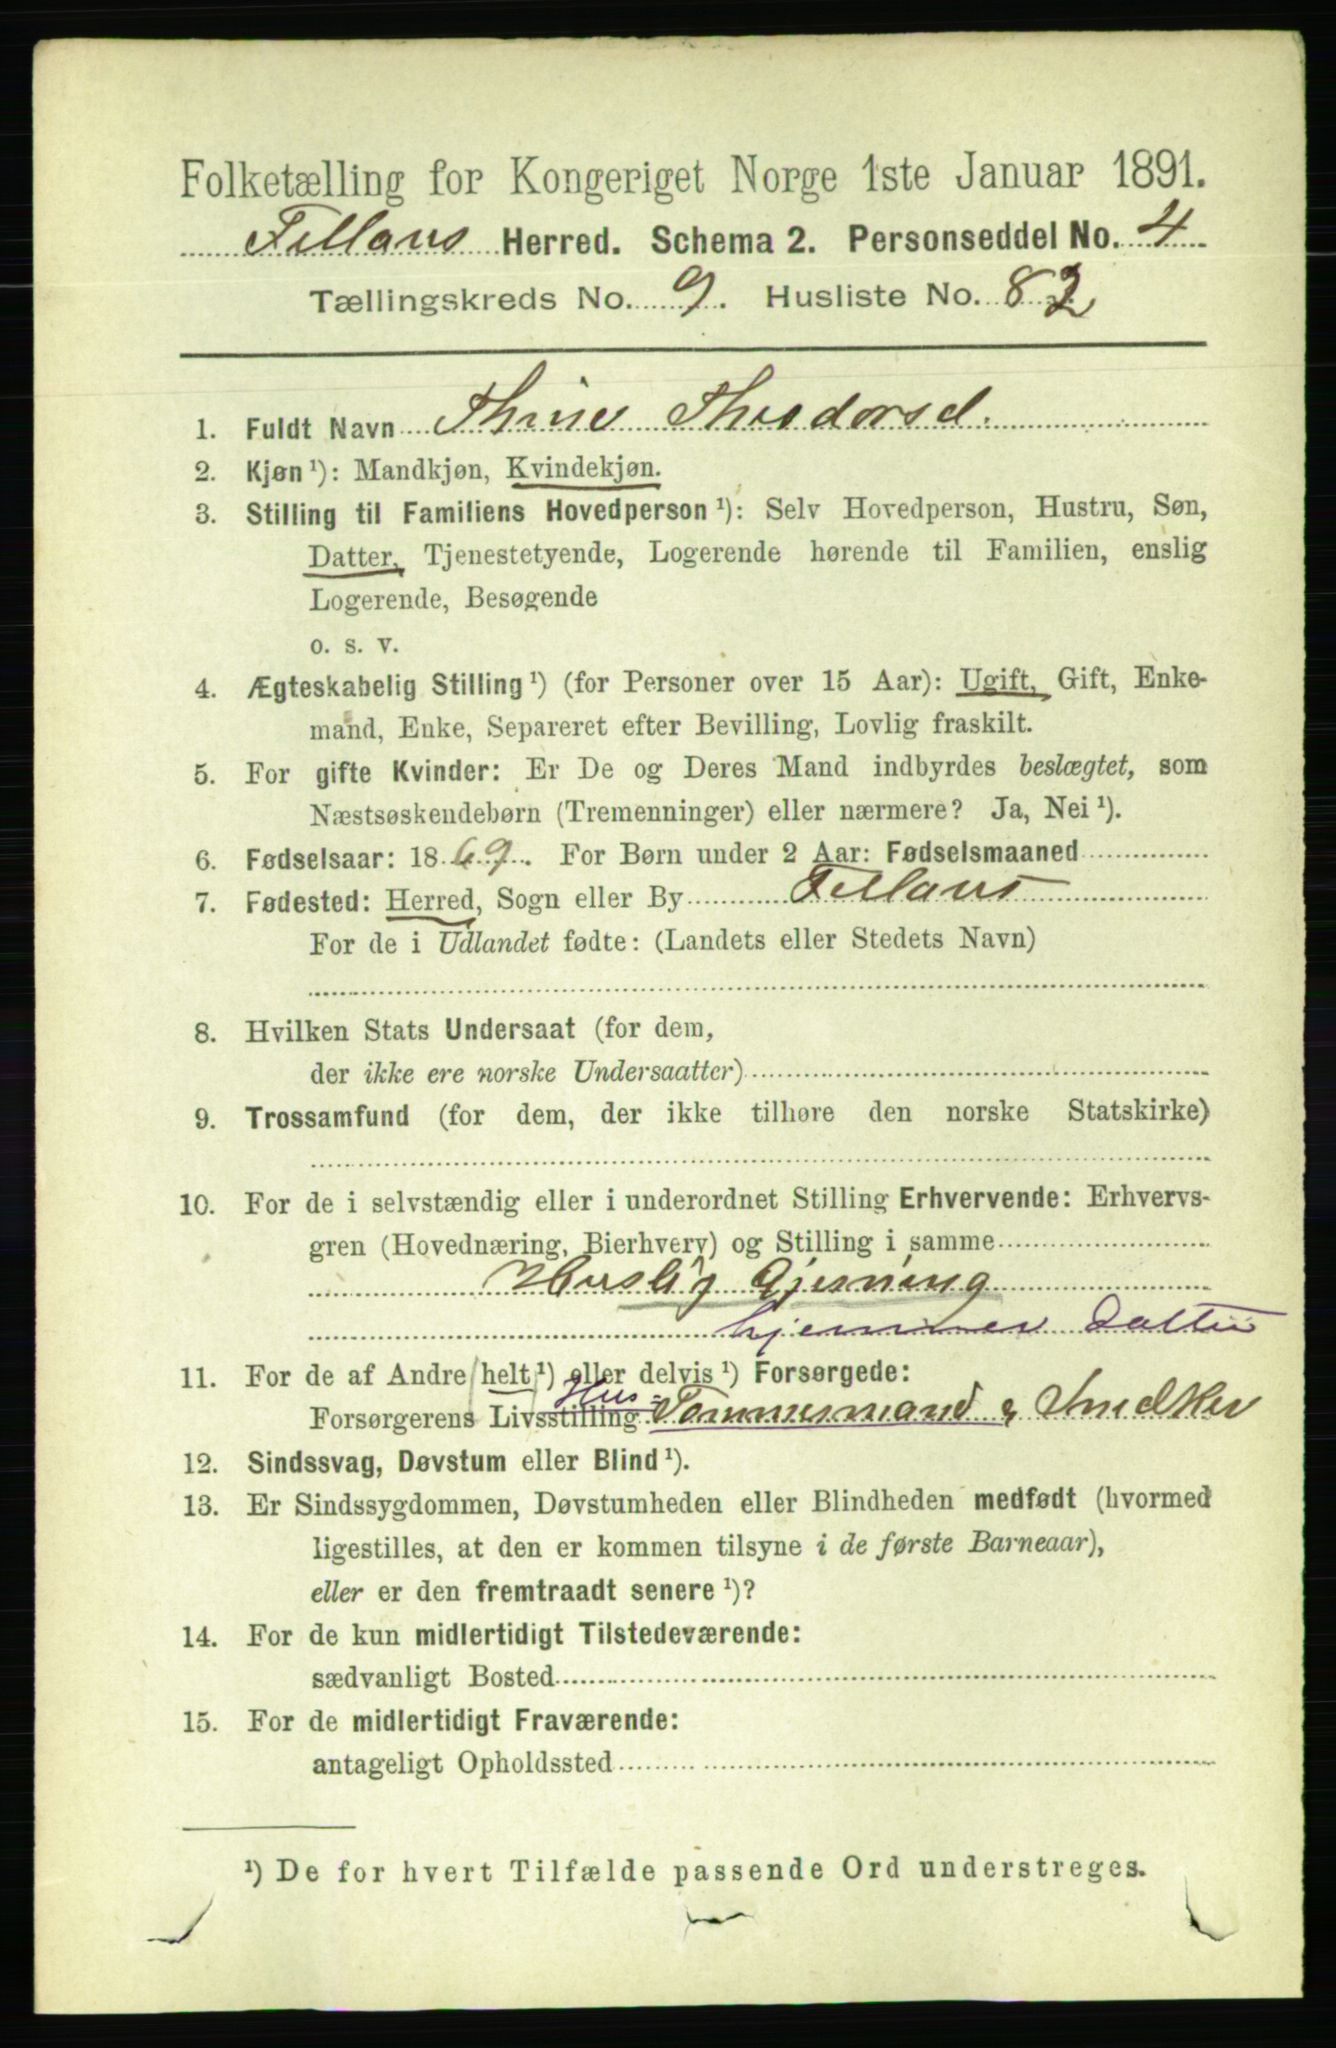 Folketælling for Kongeriget Norge 1ste Januar 1891.
Fillans Herred. Schema 2. Personseddel No. 4
Tællingskreds No. 9. Husliste No. 82
1. Fuldt Navn Thine Theodorsd.
2. Kjøn ¹): Mandkjøn, Kvindekjøn.
3. Stilling til Familiens Hovedperson ¹): Selv Hovedperson, Hustru, Søn,
Datter, Tjenestetyende, Logerende hørende til Familien, enslig
Logerende, Besøgende
o. s. v.
4. Ægteskabelig Stilling ¹) (for Personer over 15 Aar): Ugift, Gift, Enke-
mand, Enke, Separeret efter Bevilling, Lovlig fraskilt.
5. For gifte Kvinder: Er De og Deres Mand indbyrdes beslægtet, som
Næstsøskendebørn (Tremenninger) eller nærmere? Ja, Nei ¹).
6. Fødselsaar: 1869. For Børn under 2 Aar: Fødselsmaaned
7. Fødested: Herred, Sogn eller By Fillans
For de i Udlandet fødte: (Landets eller Stedets Navn)
8. Hvilken Stats Undersaat (for dem,
der ikke ere norske Undersaatter)
9. Trossamfund (for dem, der ikke tilhøre den norske Statskirke)
10. For de i selvstændig eller i underordnet Stilling Erhvervende: Erhvervs-
gren (Hovednæring, Bierhverv) og Stilling i samme
Huslig Gjerning
hjemmev Datter
11. For de af Andre helt ¹) eller delvis ¹) Forsørgede:
Hus-
Forsørgerens Livsstilling Tømmermand & Snedker
12. Sindssvag, Døvstum eller Blind ¹).
13. Er Sindssygdommen, Døvstumheden eller Blindheden medfødt (hvormed
ligestilles, at den er kommen tilsyne i de første Barneaar),
eller er den fremtraadt senere ¹)?
14. For de kun midlertidigt Tilstedeværende:
sædvanligt Bosted
15. For de midlertidigt Fraværende:
antageligt Opholdssted
¹) De for hvert Tilfælde passende Ord understreges.